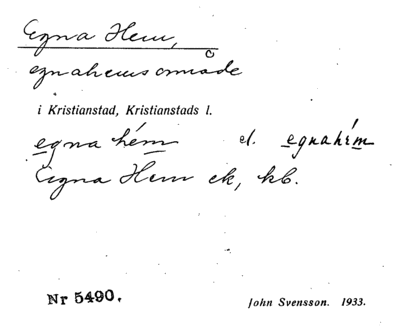 Egna Hem,
egnahemsområde
i Kristianstad, Kristianstads l.
egna hém el. egnahém
Egna Hem ek, kb.
Nr 5490.
John Svensson. 1933.